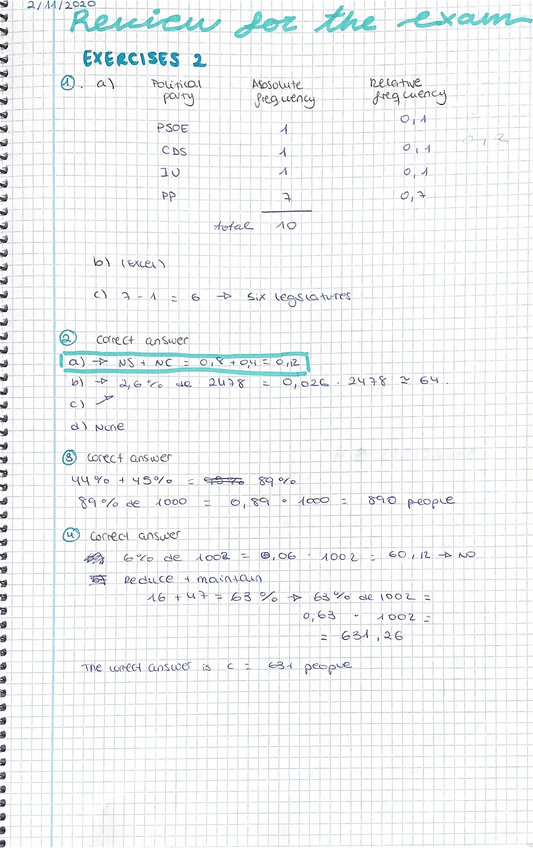 2/11/2020
Review for the exam
EXERCISES 2
1. a) Political party Absolute frequency Relative frequency
PSOE 1 0,1
CDS 1 0,1
IU 1 0,1
PP 7 0,7
total 10
b) (Excel)
c) 7 - 1 = 6 → six legislatures
2 correct answer
a) → NS + NC = 0,8 + 0,4 = 0,12
b) → 2,6% de 2478 = 0,026 · 2478 ≃ 64.
c) ↗
d) None
3 correct answer
44% + 45% = 89%
89% de 1000 = 0,89 · 1000 = 890 people
4 correct answer
6% de 1002 = 0,06 · 1002 = 60,12 → NO
Reduce + maintain
16 + 47 = 63% → 63% de 1002 =
0,63 · 1002 =
= 631,26
The correct answer is c = 631 people